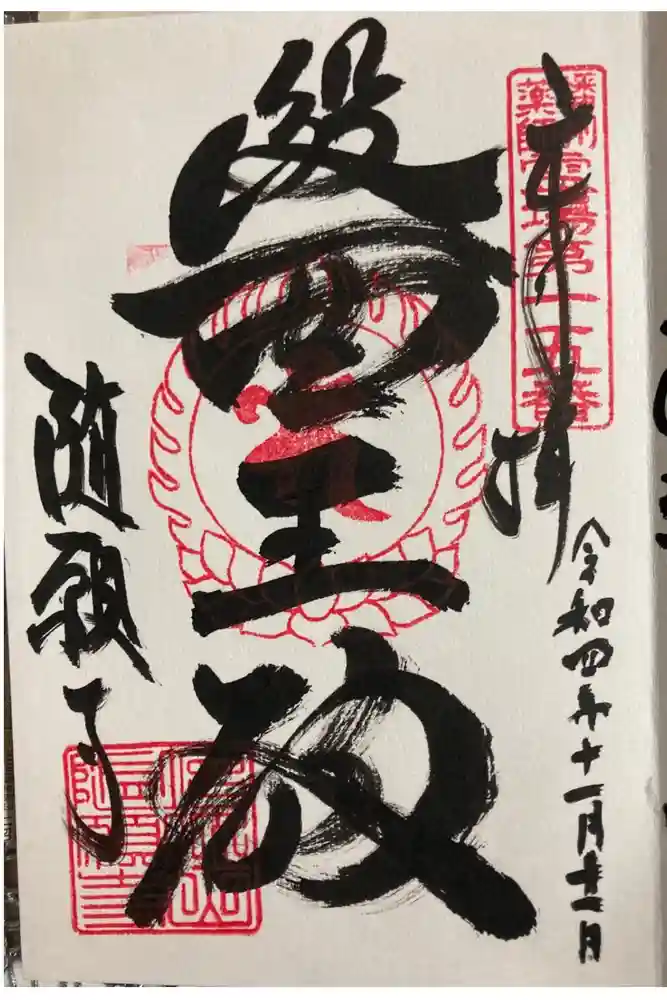 播州薬師霊場第十五番
奉拝
令和四年十一月十二日
醫王殿
随願寺